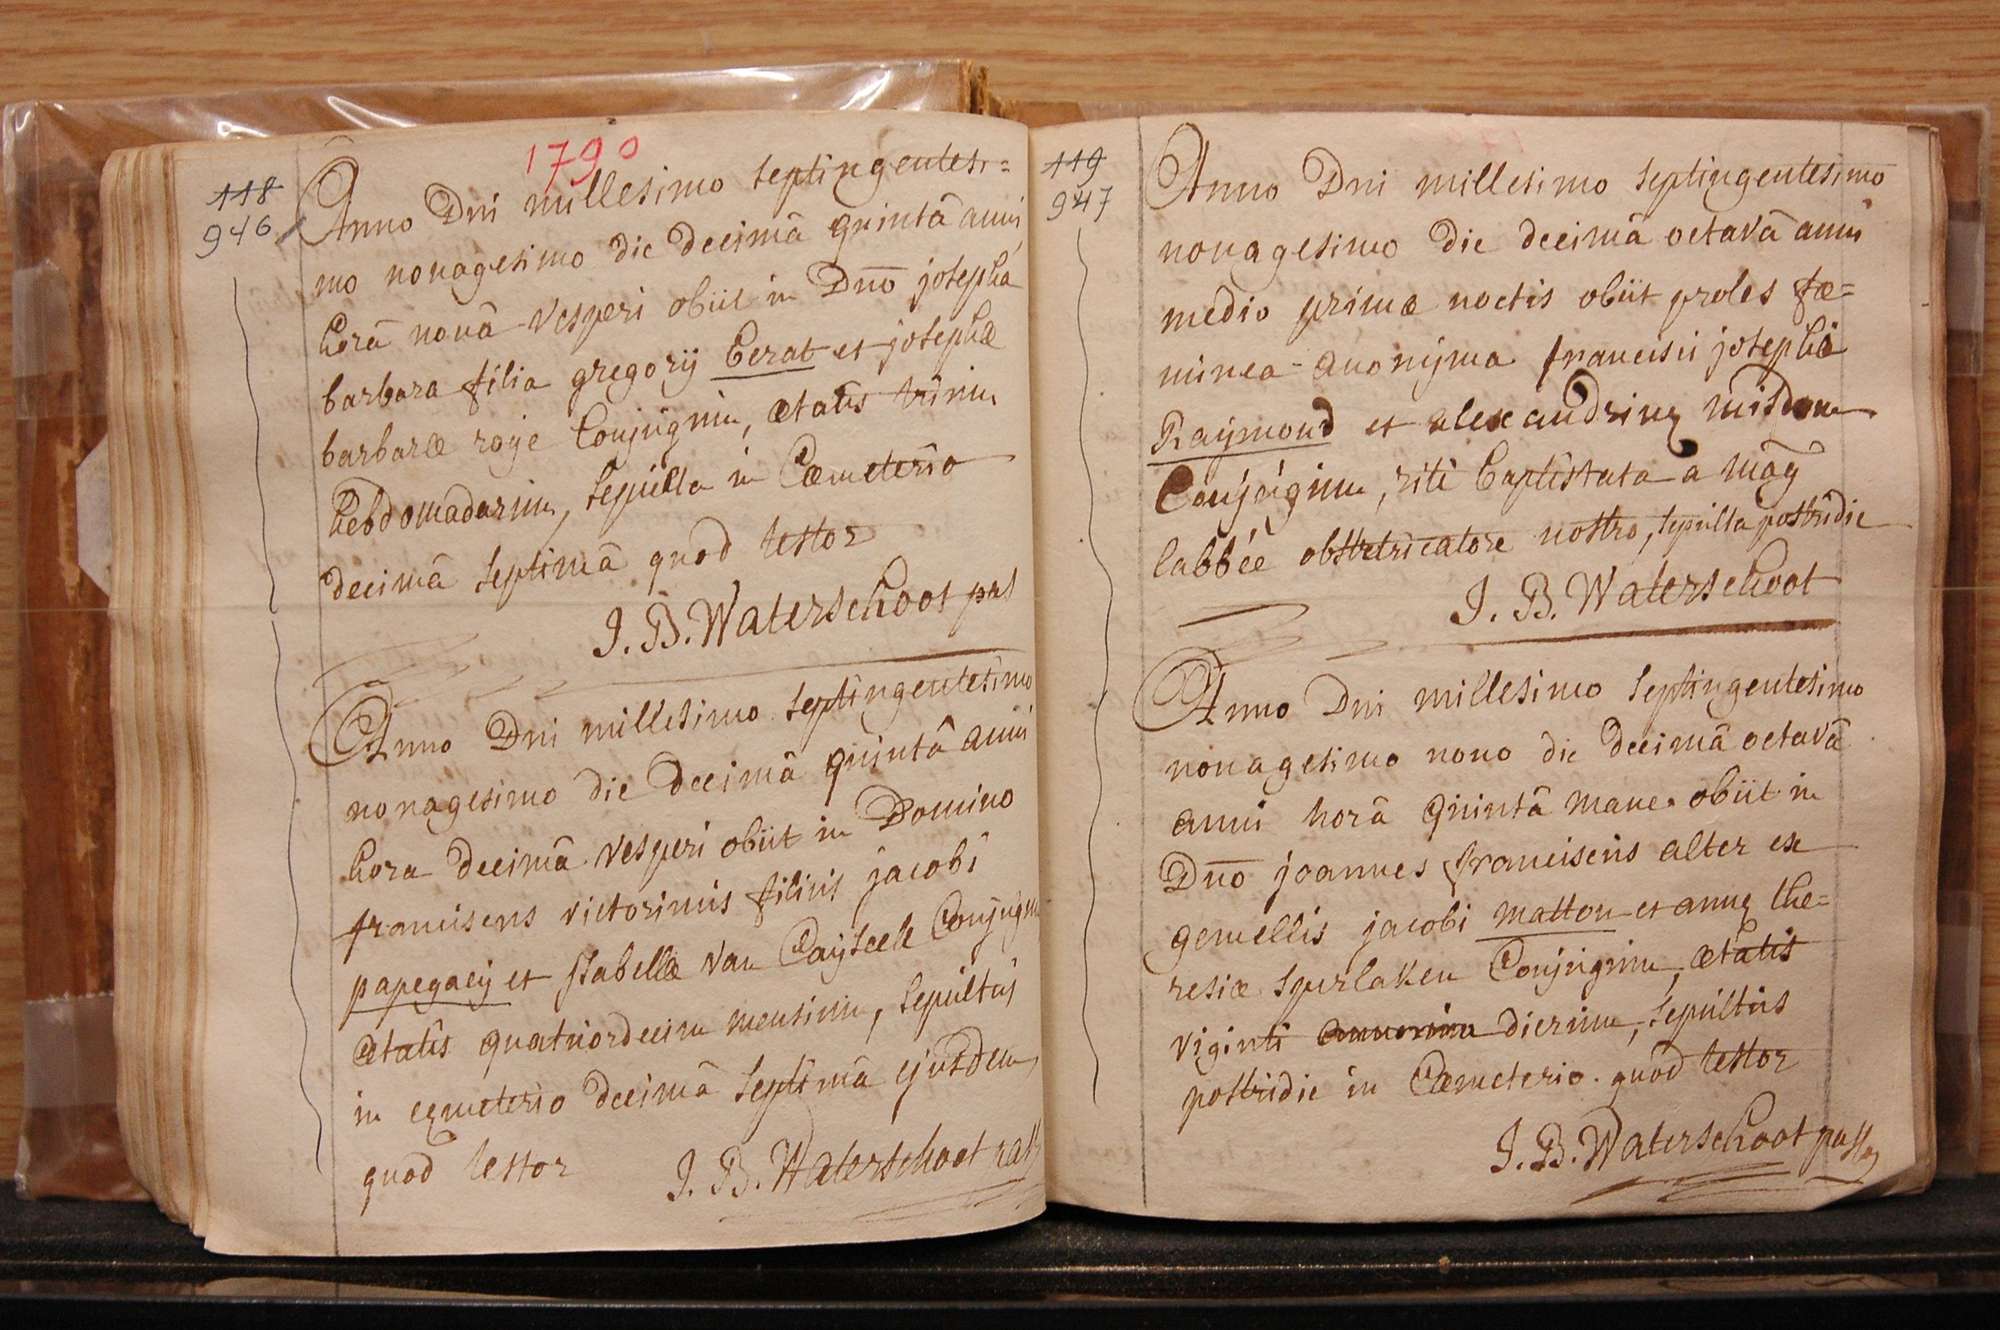 1790
118
946
Anno Dni millesimo septingentesi=
mo nonagesimo die decimâ quintâ anni
horâ nonâ vesperi obiit in Dno josepha
barbara filia gregorij Cerat et josephæ
barbaræ roje Conjugum, ætatis trium
hebdomadarum, sepulta in Cœmeterio
decimâ septimâ quod testor
J. B. Waterschoot pas
Anno Dni millesimo septingentesimo
nonagesimo die decimâ quintâ anni
hora decimâ vesperi obiit in Domino
franciscus victorinus filius jacobi
papegaeij et isabellæ van Caÿseele Conjugum
ætatis quatuordecim mensium, sepultus
in cœmeterio decimâ septimâ ejusdem
quod testor J. B. Waterschoot past
119
947
Anno Dni millesimo septingentesimo
nonagesimo die decimâ octavâ anni
medio primæ noctis obiit proles fœ=
minea anonÿma francisci josephi
Raÿmond et alexandrinæ
Conjugum, ritè baptistata a mag
labbée obstetricatore nostro, sepulta postridie
J. B. Waterschoot
Anno Dni millesimo septingentesimo
nonagesimo nono die decimâ octavâ
anni horâ quintâ mane obiit in
Dno joannes franciscus alter ex
gemellis jacobi matton et annæ the=
resiæ spurlaken Conjugum, ætatis
viginti annorum dierum, sepultus
postridie in Cœmeterio quod testor
J. B. Waterschoot pastor